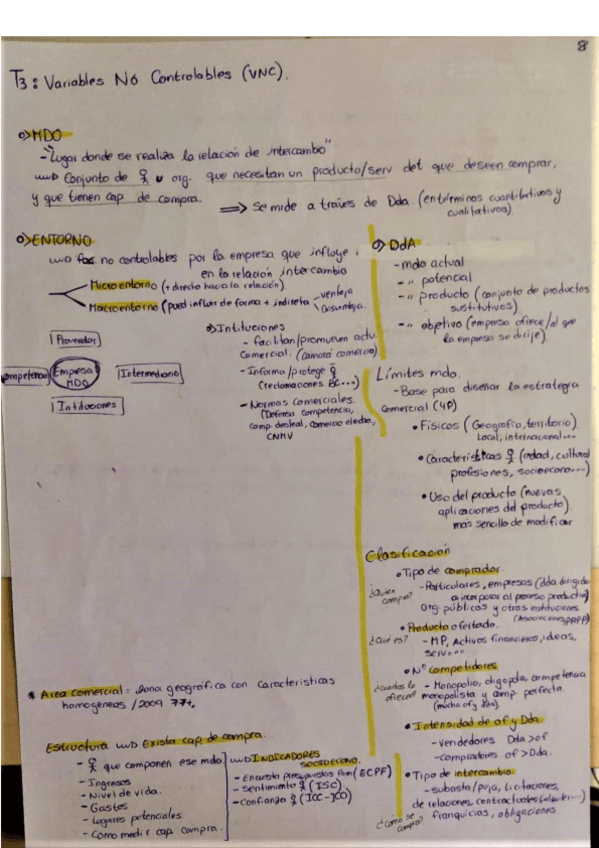 8
T3: Variables No Controlables (VNC).
MDO
- "Lugar donde se realiza la relación de intercambo"
Conjunto de u org. que necesitan un producto/serv det que deseen comprar,
y que tienen cap de compra. ⟹ se mide a través de Dda. (en términos cuantitativos y
cualitativos)
ENTORNO
no controlables por la empresa que influye
en la relación intercambio
Microentorno (+ directo hacia la relación).
Macroentorno (pued influir de forma + indireta - ventaja
- Desventaja.
Proveedor
ompetencia
Empresa
MDO
Intermediario
Intituciones
Intituciones
- facilitan/promueven actv
comercial. (camara comercio)
- Informa/protege
(reclamaciones BC...)
- Normas comerciales.
(Defensa competencia,
comp. desleal, comercio electro.,
CNMV
DdA
- mdo actual
- " potencial
- " producto (conjunto de productos
sustitutivos)
- " objetivo (empresa ofrece/al que
la empresa se dirije)
Límites mdo.
- Base para diseñar la estrategia
comercial (4P)
• Físicos (Geografía, territorio)
Local, internacional...
• Características (edad, cultural
profesiones, socioecono....)
• Uso del producto (nuevas
aplicaciones del producto).
más sencillo de modificar
Clasificación
• Tipo de comprador.
¿Quien compra?
- Particulares, empresas (dda dirigida
a incorporar al proceso productivo)
Org. públicas y otras instituciones
(Asociaciones, PPPP)
• Producto ofertado.
¿Qué es? - MP, Activos financieros, ideas,
serv...
• Nº competidores
¿cuantos lo ofrecen?
- Monopolio, oligopolio, competencia
monopolista y comp perfecta.
(mucha of y dda)
• Intensidad de of y Dda.
- vendedores Dda > of
- compradores of > Dda.
• Tipo de intercambio.
- subasta/puja, licitaciones,
de relaciones, contractuales
¿Como se compra?
franquicias, obligaciones.
* Area comercial = zona geográfica con características
homogéneas / 2009 77+,
Estructura Exista cap de compra.
- que componen ese mdo.
- Ingresos
- Nivel de vida.
- Gastos
- Lugares potenciales.
- Cómo medir cap compra.
INDICADORES
SOCIOECONO.
- Encuesta presupuestos fam (ECPF)
- Sentimiento (ISC)
- Confianza (ICC-ICO)